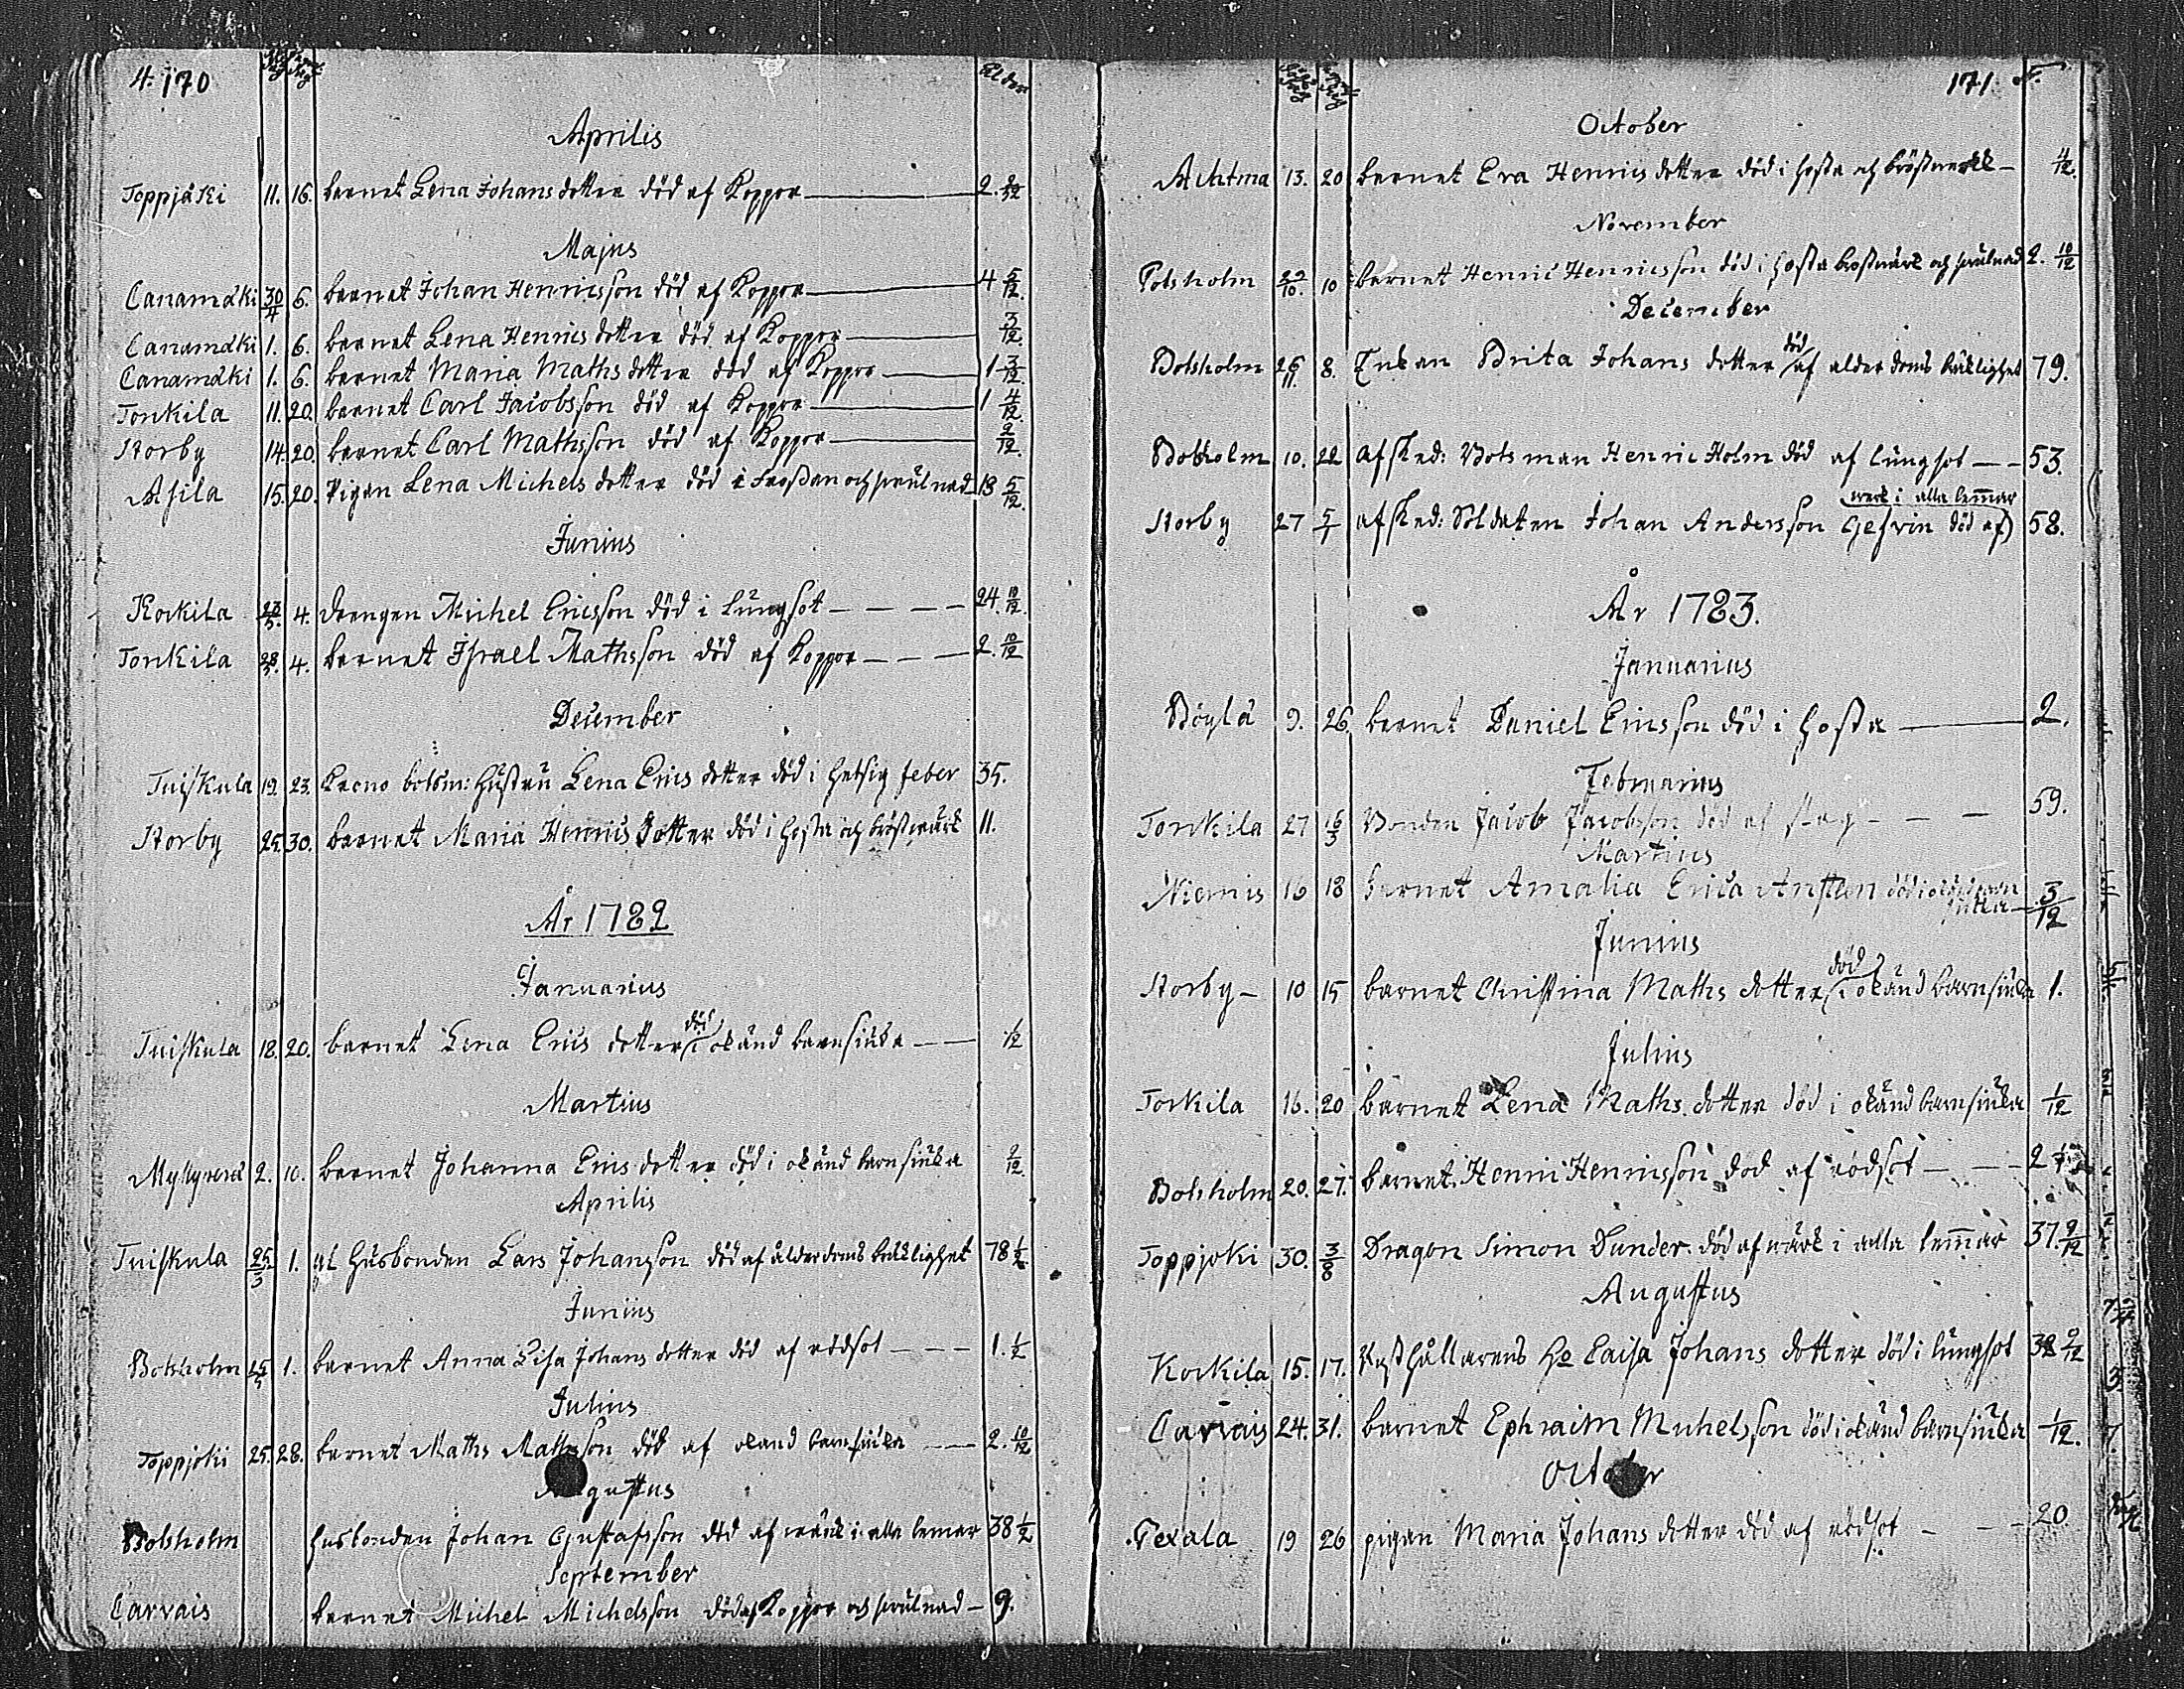 4. 170
Ålder
Aprilis
Toppjåki 11. 16. barnet Lena Johans dotter död af Koppor 2.
Majus
Canamäki 30/4 6. barnet Johan Henricsson död af Koppor 4 5/12.
Canamäki 1. 6. barnet Lena Henrics dotter död af Koppor 3/12.
Canamäki 1. 6. barnet Maria Maths dotter död af Koppor 1 3/12.
Tonkila 11. 20. barnet Carl Jacobsson död af Koppor 1 4/12
Storby 14. 20. barnet Carl Mathsson död af Koppor 2/12.
Asila 15. 20. Pigan Lena Michels dotter död i frossan och swulnad 13 5/12.
Junius
Korkila 4. drengen Michel Ericsson död i lungsot 24. 10/12.
Tonkila 28/5. 4. barnet Israel Mathsson död af Koppor 2. 10/12
December
Tuiskula 19. 23. Krono botsm: hustru Lena Erics dotter död i hetsig feber 35.
Storby 25. 30. barnet Maria Henrics dotter död i hosta och bröstwärk 11.
År 1782
Januarius
Tuiskula 18. 20. barnet Lena Erics dotter död i okänd barnsiuka 1/12
Martius
2. 10. barnet Johanna Erics dotter död i okänd barnsiuka 2/12.
Aprilis
Tuiskula 25/3 1. husbonden Lars Johansson död af ålderdoms bräcklighet 78 1/2
Junius
Botsholm 1. barnet Anna Lisa Johans dotter död af rödsot 1. 1/2
Julius
Toppjoki 25. 28. barnet Maths Mathsson död af okänd barnsiuka 2. 10/12
Augustus
Botsholm husbonden Johan Gustafsson död af wärk i alla lemar 38 1/2
September
Carvais barnet Michel Michelsson död af Koppor och swulnad 9.
171.
October
Achtma 13. 20 barnet Eva Henrics dotter död i hosta och bröstwerk
November
Botsholm 29/10. 10 barnet Henric Henricsson död i hosta bröstwärk och swulnad 2. 10/12
December
Botsholm 26/11. 8. Enkan Brita Johans dotter död af alderdoms bräklighet 79.
Botsholm 10. 22 afsked: Botsman Henric Holm död af lungsot 53.
werk i alla lemmar
Storby 27 5/1 afsked: Soldaten Johan Andersson Gefvin död af 58.
År 1783.
Januarius
Böylä 9. 26. barnet Daniel Ericsson död i hosta 2.
Februarius
Tonkila 27 16/3 Bonden Jacob Jacobsson död af 59.
Martius
Niemis 16 18 barnet Amalia Erica död i okänd barn siuka 3/12
Junius
Storby 10 15 barnet Christina Maths dotter död i okänd barnsiuka 1.
Julius
Torkila 16. 20 barnet Lena Maths dotter död i okänd barnsiuka 1/12
Botsholm 20. 27. barnet Henric Henricsson död af rödsot 2
Toppjoki 30. 3/8 Dragon Simon Dunder död af wärk i alla lemmar 37. 9/12
Augustus
Korkila 15. 17. Rusthållarens ho Caisa Johans dotter död i lungsot 38 9/12
Carvais 24. 31. barnet Ephraim Michelsson död i okänd barnsiuka 1/12.
October
Pexala 19 26 pigan Maria Johans dotter död af rödsot 20